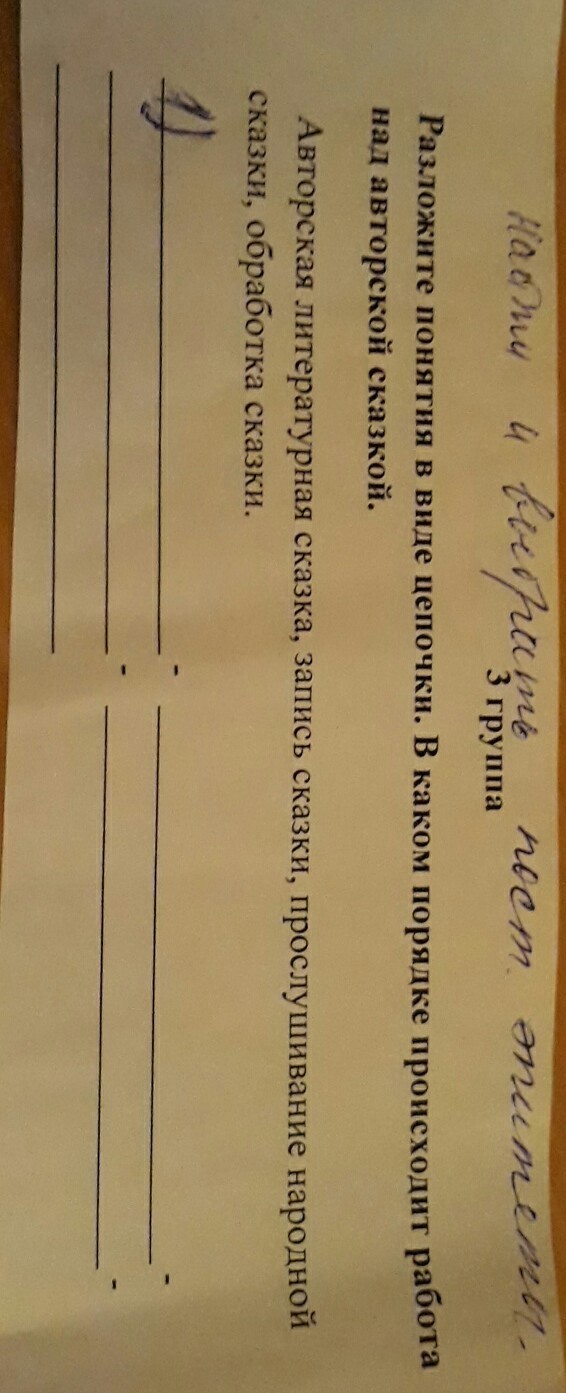 Найти и выбрать пост. эпитеты.
3 группа
Разложите понятия в виде цепочки. В каком порядке происходит работа
над авторской сказкой.
Авторская литературная сказка, запись сказки, прослушивание народной
сказки, обработка сказки.
1) - -
- -